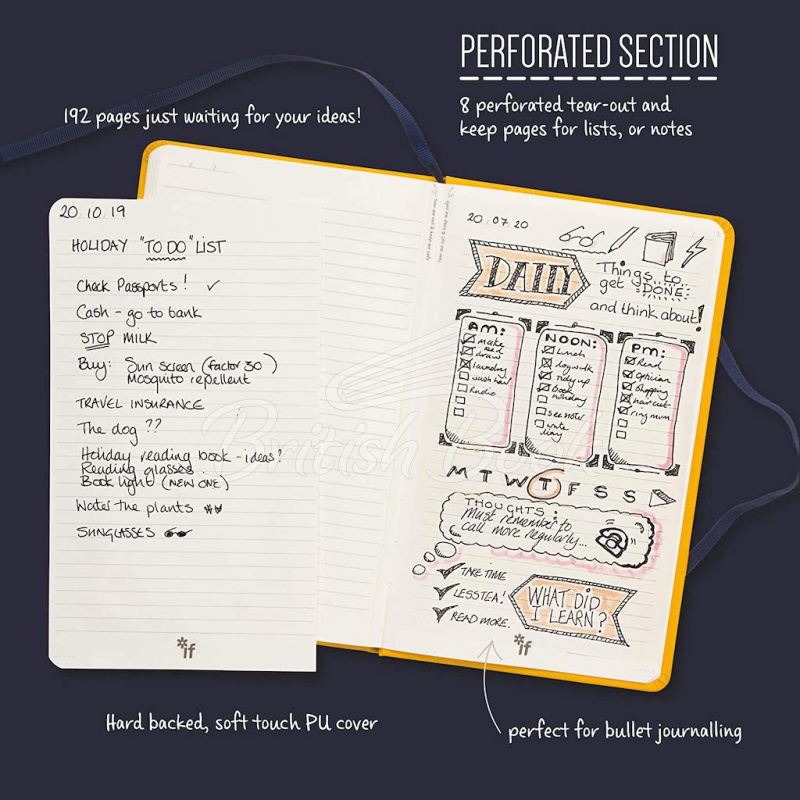 PERFORATED SECTION
8 perforated tear-out and
keep pages for lists, or notes
192 pages just waiting for your ideas!
20.10.19
HOLIDAY "TO DO" LIST
Check Passports! ✓
Cash - go to bank
STOP MILK
Buy: Sun screen (factor 30)
Mosquito repellent
TRAVEL INSURANCE
The dog ??
Holiday reading book - ideas!
Reading glasses..
Book light (NEW ONE)
Water the plants
SUNGLASSES
*if
20.07.20
DAILY
Things to
get DONE
and think about!
AM:
make
bed
draw
laundry
wash hair
Radio
NOON:
Lunch
dogwalk
Tidy up
Book
holiday
see notes
write
PM:
Read
Optician
Shopping
Haircut
ring mum
M T W T F S S
THOUGHTS:
Must remember to
call more regularly...
TAKE TIME
LESS TEA!
READ MORE.
WHAT DID
I LEARN?
*if
British Book
Hard backed, soft touch PU cover
perfect for bullet journalling